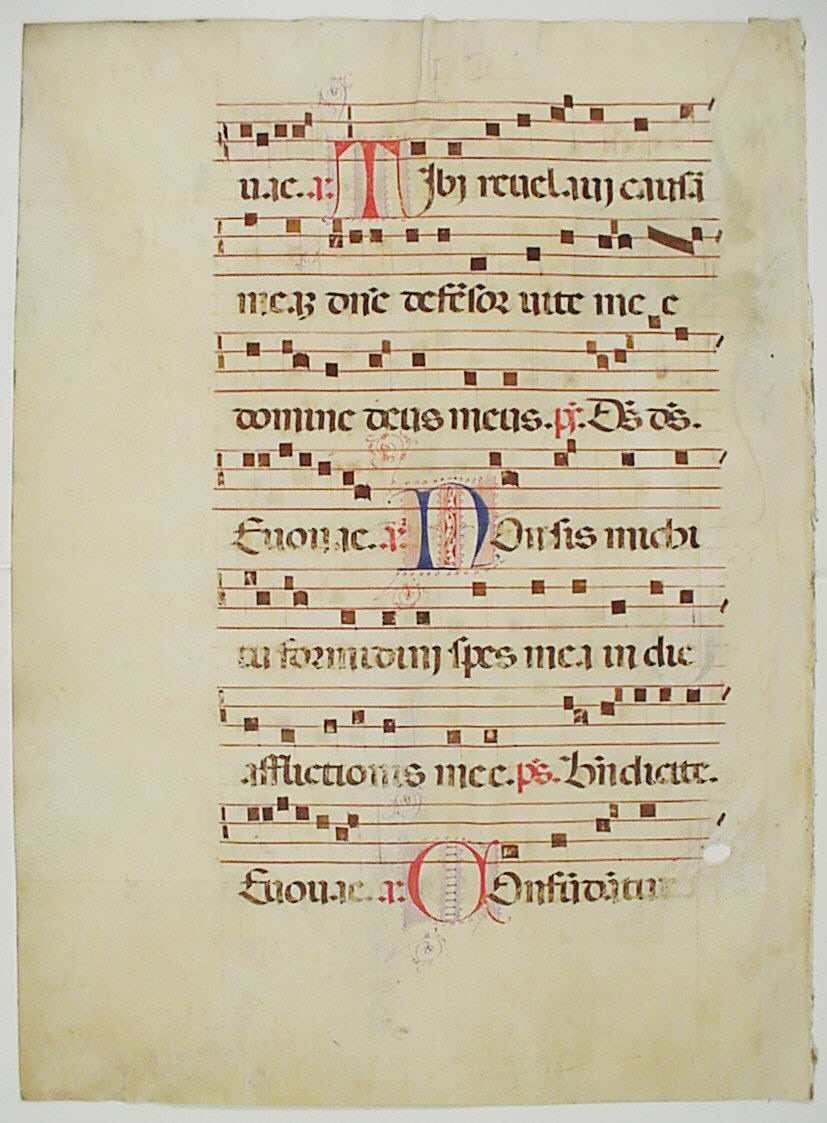 uae. a: Tibi reuelaui causã
meaꝫ dñe defẽsor uite mee
domine deus meus. ps̃. Ds̃ ds̃.
Euouae. a: Non sis michi
tu formidini spes mea in die
afflictionis mee. ps̃. Bñdicite.
Euouae. a: Confũdãtur